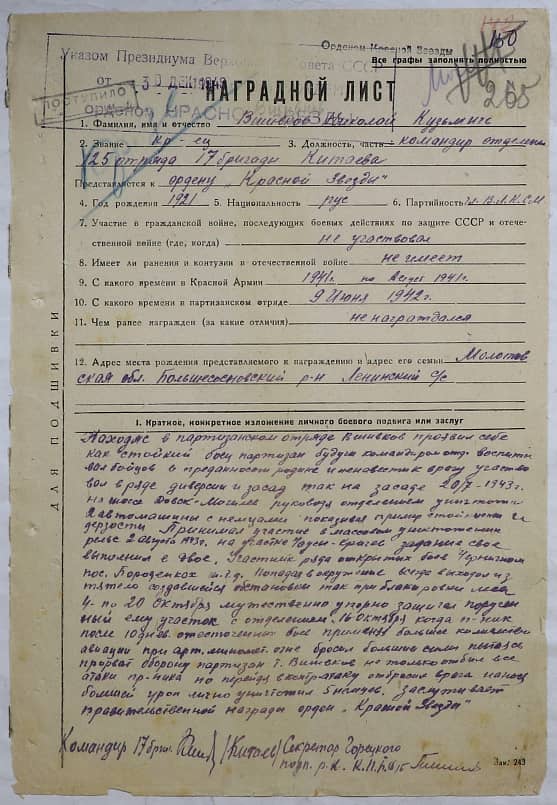 150
Орденом Красной Звезды
Все графы заполнять полностью
Указом Президиума Верховного Совета СССР
от 30 ДЕК 1948
ПОСТУПИЛО
НАГРАДНОЙ ЛИСТ
265
орденом КРАСНОЙ ЗВЕЗДЫ
1. Фамилия, имя и отчество Вшивков Николой Кузьмич
2. Звание кр-ец 3. Должность, часть командир отделения
125 отряда 17 бригады Китаева
Представляется к ордену „Красной Звезды"
4. Год рождения 1921 5. Национальность рус 6. Партийность чл-В.Л.К.С.М
7. Участие в гражданской войне, последующих боевых действиях по защите СССР и отече-
ственной войне (где, когда) не участвовал
8. Имеет ли ранения и контузии в отечественной войне не имеет
9. С какого времени в Красной Армии 1941г. по Август 1941г.
10. С какого времени в партизанском отряде 9 Июня 1942г.
11. Чем ранее награжден (за какие отличия) не награждался
12. Адрес места рождения представляемого к награждению и адрес его семьи Молотов
ская обл. Большесосновский р-н Ленинский с/с
ДЛЯ ПОДШИВКИ
I. Краткое, конкретное изложение личного боевого подвига или заслуг
Находяс в партизанском отряде Вшивков проявил себе
как стойкий боец партизан будучи командиром отд. воспиты
вол бойцов в преданности родине и ненавистик врагу участво
вол в ряде диверсий и засад так на засаде 20/7-1943г.
на шосе Довск-Могилев руководя отделением уничтоти
2 автомашины с немцами показывая пример стойкости и
дерзости Принимал участие в массовом уничтожении
рельс 2 августа 1943г. на участке Чаусы- задание свое
выполнил в двое. Участник ряда открытых боев
пос. и.т.д. Попадая в окружение всегда выходил из
тятело создавшейся остановки так при блакировки леса
4-по 20 Октября мутественно упорно защищал поручен
ный ему участок с отделением. 16 Октября когда п-ник
после 10 днев. отесточенных боев применяя большое количество
авиации при арт. миномет. огне бросил большие силы пытаясь
прорват оборону партизан т. Вшивков не только отбил все
атаки пр-ника но перейдя в контратаку отбросил врага нанося
большой урон лично уничтожил 5 немцев. Заслутивает
правительственной награды орден „Красной Звезды"
Командир 17 бриг. /Китаев/ Секретарь Горецкого
подп. р.к. К.П./б/Б
Зак. 243